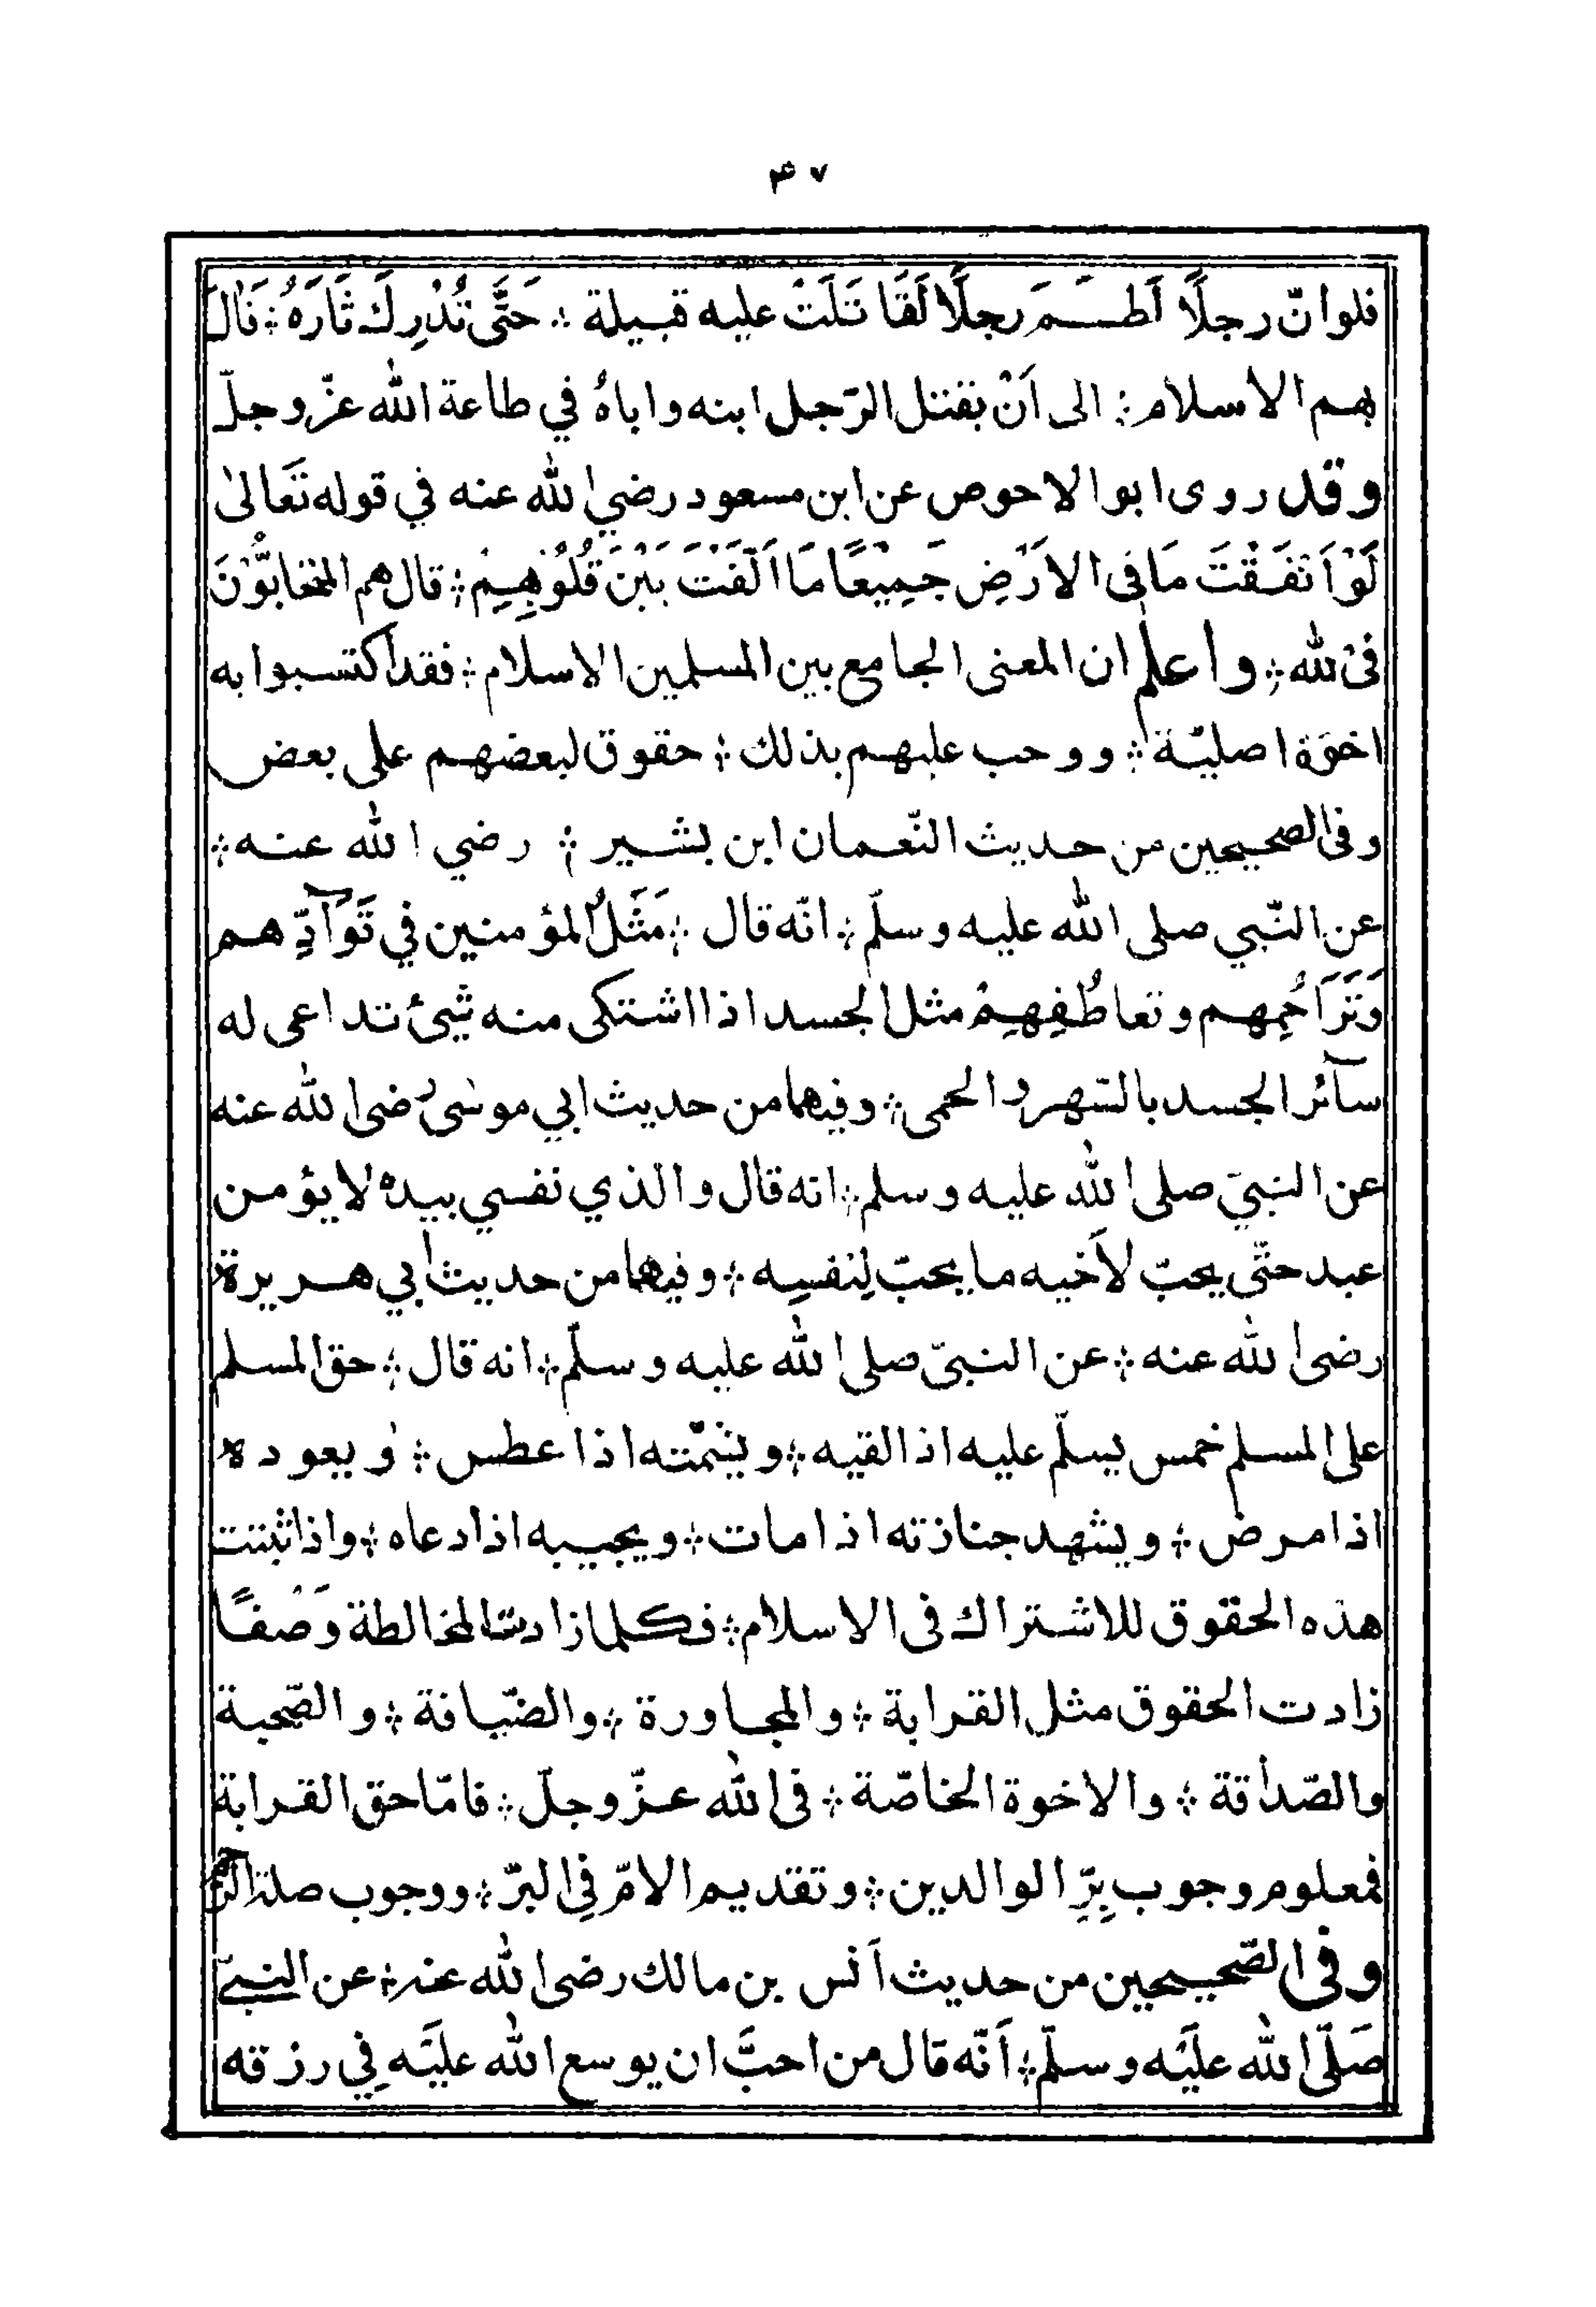 ٤٧
فلوانّ رجلًا اَطــمَ رجلًا لَقَا تَلَتْ عليه قبيلة ⁘ حَتّٰى تُدْرِكَ ثَارَهُ ⁘ قَالَ
بهم الاسلام ⁘ الى اَنْ يقتل الرّجل ابنه واباهُ في طاعة الله عزّ وجلّ
وقد روى ابو الاحوص عن ابن مسعود رضي الله عنه في قوله تَعَالىٰ
لَوْ اَنْفَقْتَ مَا فِى الاَرْضِ جَمِيْعًا مَا اَلَّفْتَ بَيْنَ قُلُوْبِهِمْ ⁘ قال هم المتحابُّوْنَ
فى الله ⁘ واعلم ان المعنى الجامع بين المسلمين الاسلام ⁘ فقد اكتسبوا به
اخوّة اصليّة ⁘ ووحب عليهم بذلك ⁘ حقوق لبعضهم على بعض
وفى الصحيحين من حديث النّعمان ابن بشير ⁘ رضي الله عنه ⁘
عن النّبي صلى الله عليه وسلّم ⁘ انّه قال ⁘ مَثَلُ المؤمنين في تَوَآدِّهم
وَتَرَاحُمِهم وتعاطُفِهِمْ مثل الجسد اذا اشتكى منه شيئ تداعى له
سآئر الجسد بالسّهر والحمى ⁘ وفيهما من حديث ابي موسىٰ رضى الله عنه
عن النبيّ صلى الله عليه وسلم ⁘ انه قال والذي نفسي بيده لا يؤمن
عبد حتّى يحبّ لاَخيه ما يحبّ لِنفسِه ⁘ وفيهما من حديث ابي هريرة
رضى الله عنه ⁘ عن النبىّ صلى الله عليه وسلّم ⁘ انه قال ⁘ حق المسلم
على المسلم خمس يسلّم عليه اذا لقيه ⁘ ويشمّته اذا عطس ⁘ ويعوده
اذا مرض ⁘ ويشهد جنازته اذا مات ⁘ ويجيبه اذا دعاه ⁘ واذا ثبتت
هذه الحقوق للاشتراك فى الاسلام ⁘ فكلما زادت المخالطة وَصْفًا
زادت الحقوق مثل القرابة ⁘ والمجاورة ⁘ والضّيافة ⁘ والصّحبة
والصّداقة ⁘ والاخوة الخاصّة ⁘ فى الله عزّ وجلّ ⁘ فامّا حق القرابة
فمعلوم وجوب بِرِّ الوالدين ⁘ وتقديم الامّ فِى البرّ ⁘ ووجوب صلة الرّحم
وفى الصّحيحين من حديث اَنس بن مالك رضى الله عنه ⁘ عن النبيّ
صَلّى الله عليَْه وسلّم ⁘ اَنّه قال من احبَّ ان يوسع الله عليَْه فِي رزقه